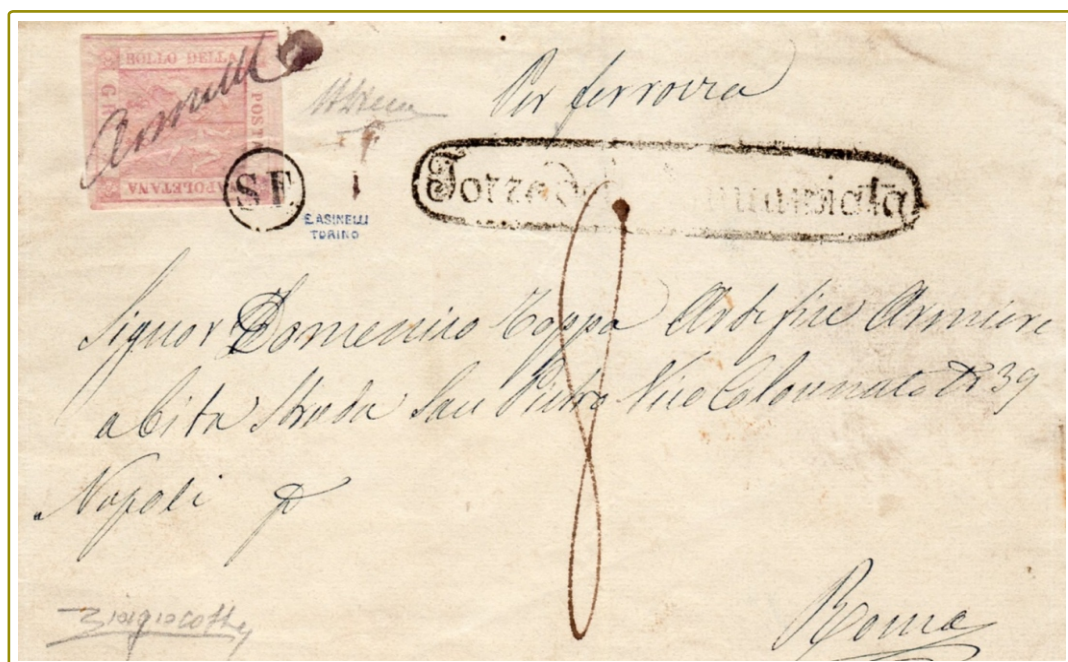 Annullato
BOLLO DELLA
POSTA
NAPOLETANA
G
Per ferrovia
SF
E. ASINELLI
TORINO
Torre Annunziata
Signor Domenico Zoppa Artefice Armiere
abita Strada San Pietro Vico Colonnato 39
Napoli
8
Roma